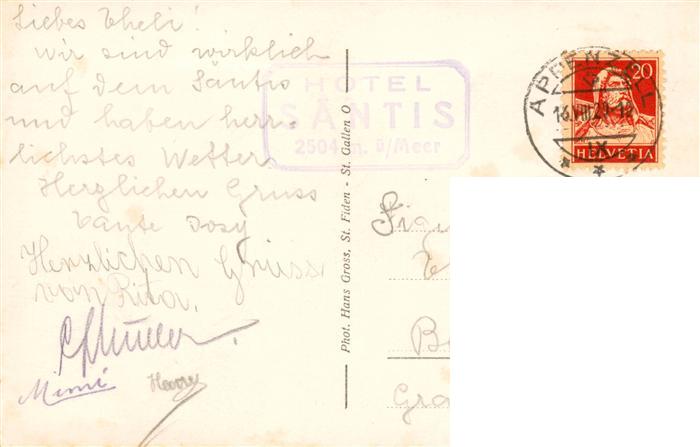 Liebes Theli!
Wir sind wirklich
auf dem Säntis
und haben herr-
lichstes Wetter
Herzlichen Gruss
Tante Josy
Herzlichen Gruss
von Rita.
Müller.
Mimi
HOTEL
SÄNTIS
2504 m. ü/Meer
Phot. Hans Gross, St. Fiden - St. Gallen O
APPENZELL
20
HELVETIA
IX